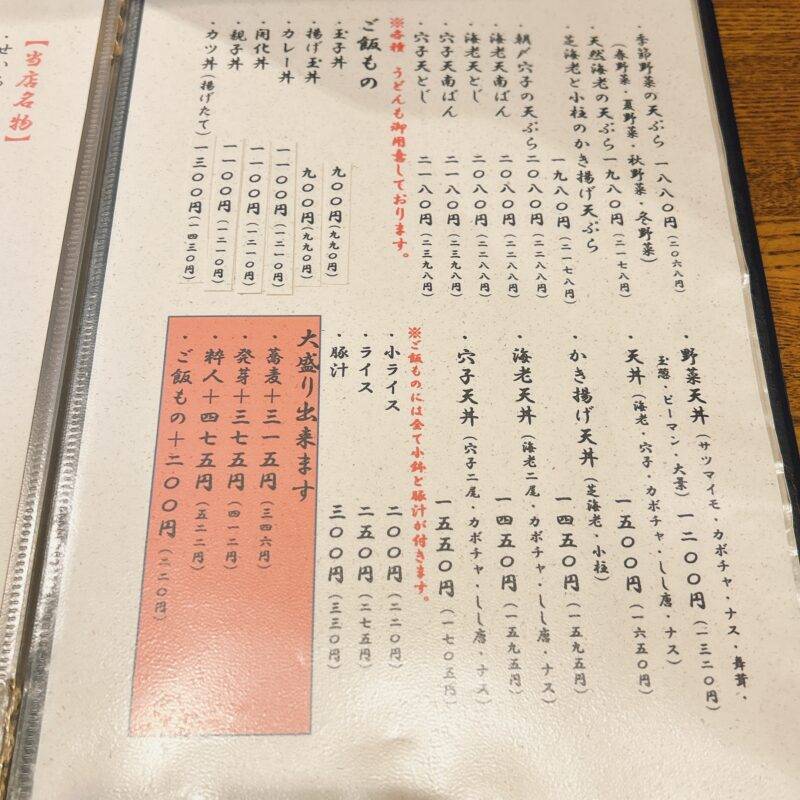 ・季節野菜の天ぷら 一八八〇円(二〇六八円)
(春野菜・夏野菜・秋野菜・冬野菜)
・天然海老の天ぷら 一九八〇円(二一七八円)
・芝海老と小柱のかき揚げ天ぷら
一九八〇円(二一七八円)
・朝〆穴子の天ぷら 二〇八〇円(二二八八円)
・海老天南ばん 二〇八〇円(二二八八円)
・海老天とじ 二〇八〇円(二二八八円)
・穴子天南ばん 二一八〇円(二三九八円)
・穴子天とじ 二一八〇円(二三九八円)
※各種 うどんも御用意しております。
ご飯もの
・玉子丼 九〇〇円(九九〇円)
・揚げ玉丼 九〇〇円(九九〇円)
・カレー丼 一一〇〇円(一二一〇円)
・開化丼 一一〇〇円(一二一〇円)
・親子丼 一一〇〇円(一二一〇円)
・カツ丼(揚げたて) 一三〇〇円(一四三〇円)
・野菜天丼(サツマイモ・カボチャ・ナス・舞茸・
玉葱・ピーマン・大葉) 一二〇〇円(一三二〇円)
・天丼(海老・穴子・カボチャ・しし唐・ナス)
一五〇〇円(一六五〇円)
・かき揚げ天丼(芝海老・小柱)
一四五〇円(一五九五円)
・海老天丼(海老二尾・カボチャ・しし唐・ナス)
一四五〇円(一五九五円)
・穴子天丼(穴子二尾・カボチャ・しし唐・ナス)
一五五〇円(一七〇五円)
※ご飯ものには全て小鉢と豚汁が付きます。
・小ライス 二〇〇円(二二〇円)
・ライス 二五〇円(二七五円)
・豚汁 三〇〇円(三三〇円)
大盛り出来ます
・蕎麦+三一五円(三四六円)
・発芽+三七五円(四一二円)
・粋人+四七五円(五二二円)
・ご飯もの+二〇〇円(二二〇円)
【当店名物】
・せいろ